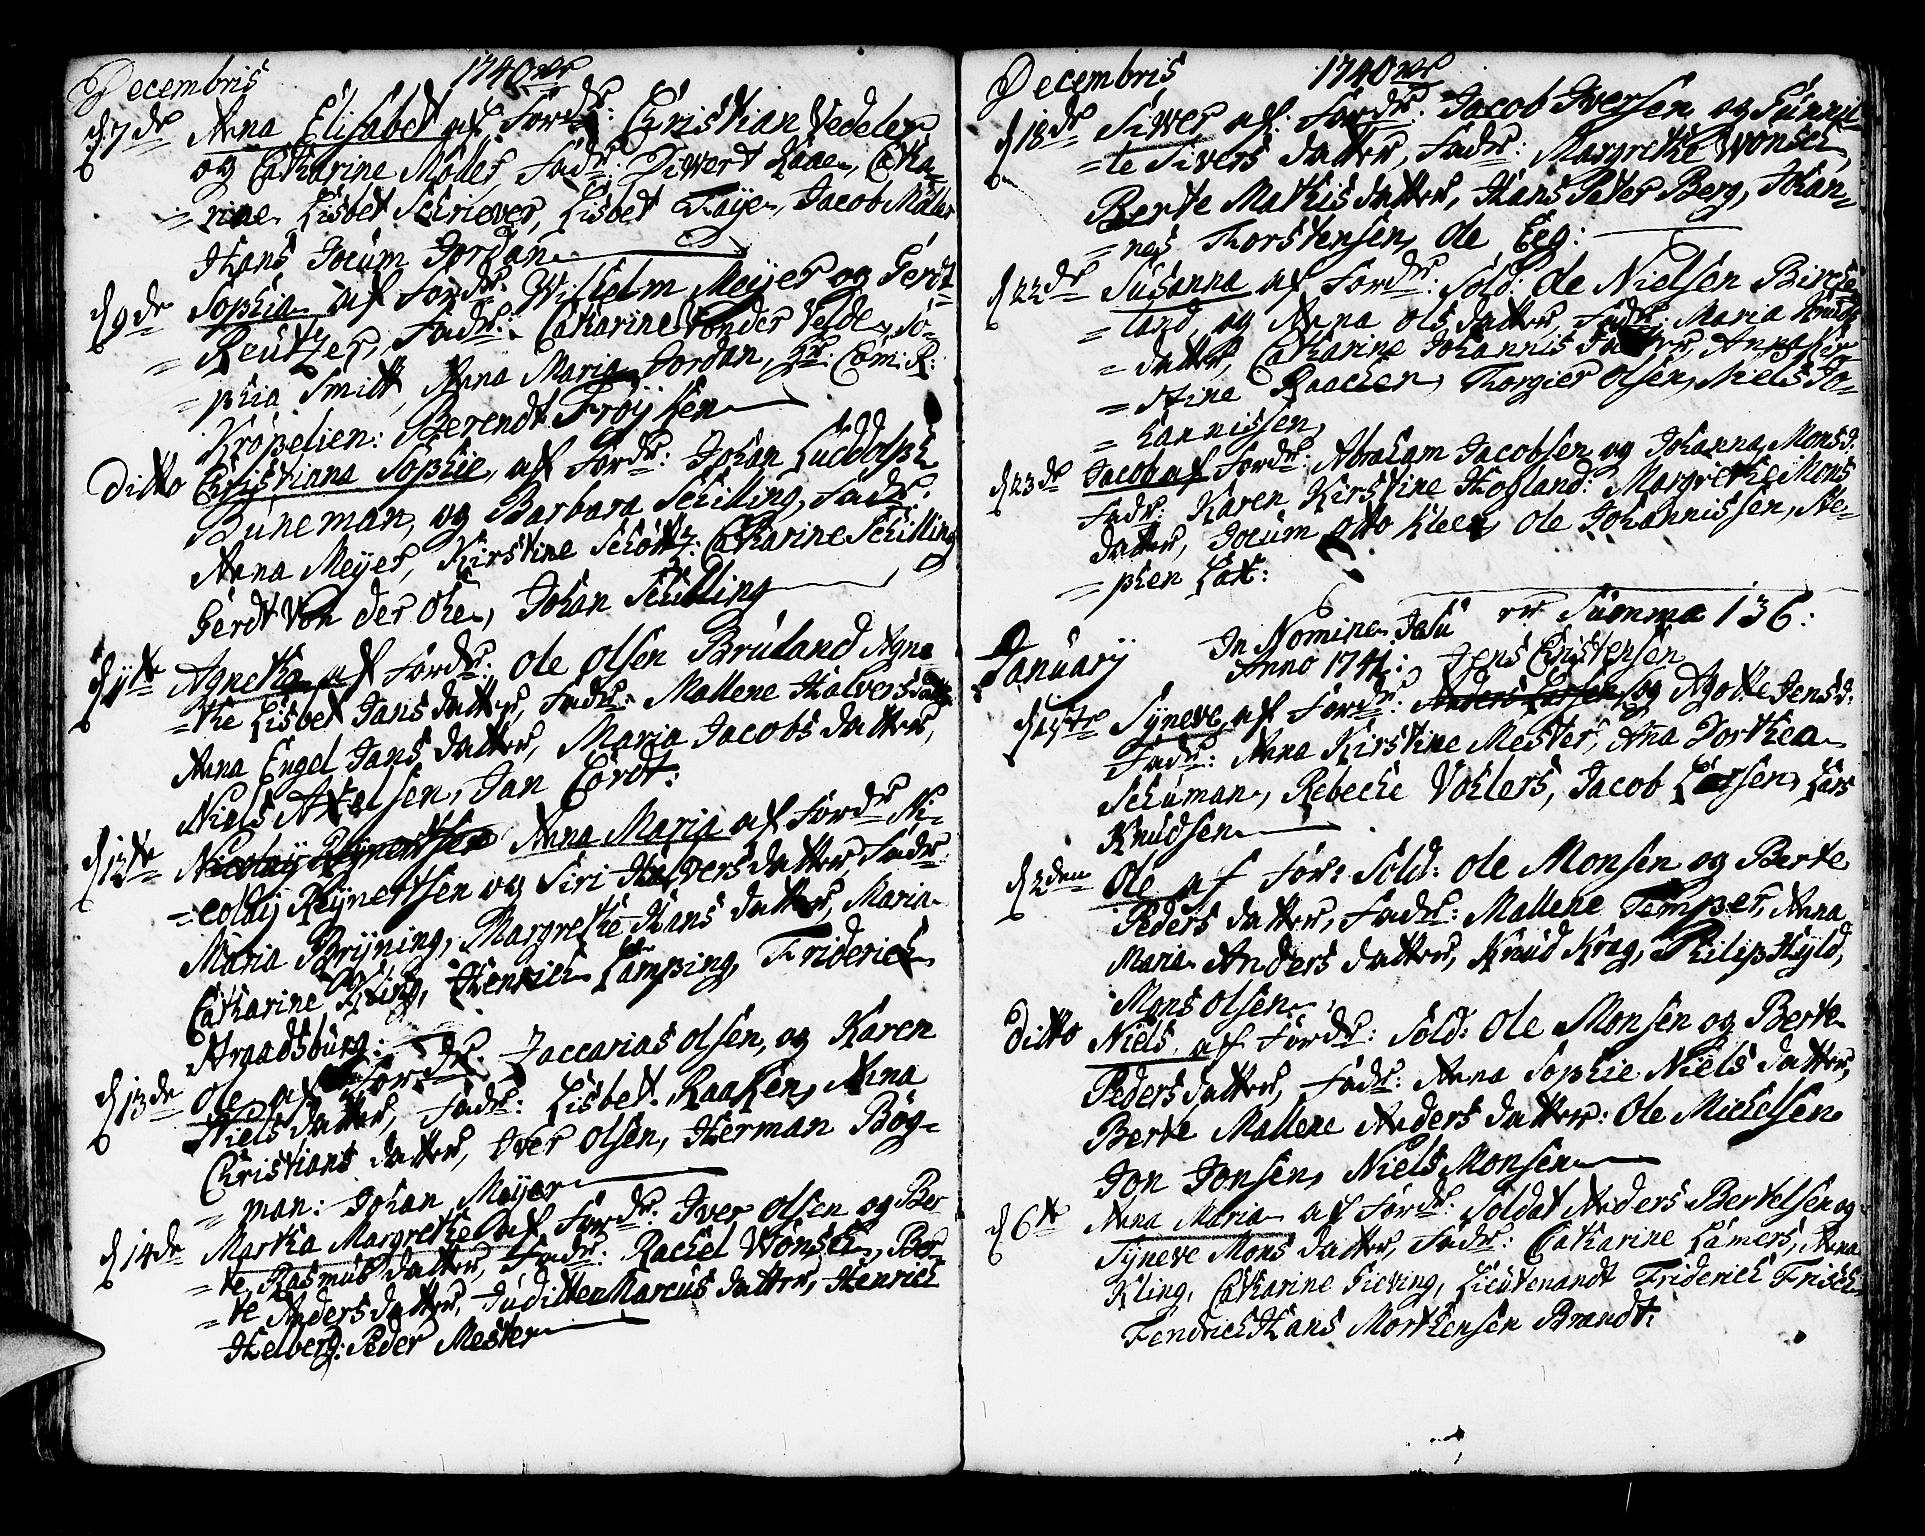 Decembris 1740
d 7de Anna Elisabet af Fordr: Christian Vedeler
og Catharine Møller, Fadr: Divert Kaae, Catha-
=rine Lisbet Schriever, Lisbet Faye, Jacob Møller
Hans Jocum Jordan
d 9de Sophia af Fordr: Wilhelm Meyer og Gerdt
= Reutzer, Fadr: Catharine Vonder Velde, So-
= phia Smitt, Anna Maria Jordan, Hr: Cam: R:
Kröpelien: Berendt Fröysen
Ditto Christiana Sophie, af Fordr: Johan Luddolph
Büneman, og Barbara Schilling, Fadr:
Anna Meyer, Kirstine Schøttz: Catharine Schilling
Gerdt Von der Ohe, Johan Schilling
d 11te Agnetha af Fordr: Ole Olsen Bruland Agne
=the Lisbet Jans datter, Fadr: Mallene Halversdatter
Anna Engel Jans datter, Maria Jacobs datter,
Niels Axelsen, Jan Cordt:
d 12te Nicolay Reynertsen Anna Maria af Fordr Ni-
=colay Reynertsen og Siri Halvers datter, Fadr:
Maria Bryning, Margrethe Hans datter, Maria
Catharine Kling, Henrich Lamping, Friderich
Straadsburg:
d 13de Ole af Fordr: Zaccarias Olsen, og Karen
Niels datter, Fadr: Lisbet Raaken, Anna
Christians datter, Iver Olsen, Herman Bög-
= man: Johan Meyer
d 14de Martha Margrethe af Fordr: Iver Olsen og Ber
=te Rasmus datter, Fadr: Rachel Wonsen, Ber-
=te Anders datter, Judithe Marcus datter, Henrich
Helberg: Peder Mester
Decembris 1740
d 18de Siver af: Fordr: Jacob Iversen og Gunnil-
=te Sivers datter, Fadr: Margrethe Wonsen,
Berte Mathis datter, Hans Peter Berg, Johan-
=nes Thorstensen, Ole Eeg:
d 22de Susanna af Fordr: Sold: Ole Nielsen Birche
=land, og Anna Ols datter, Fadr: Maria Knuds
= datter, Catharine Johannis datter, Anna Kir
= stine Raacken, Thorgier Olsen, Niels Jo-
= hannissen,
d 23de Jacob af Fordr: Abraham Jacobsen og Johanna Monsd:
Fadr: Karen Kirstine Hogland: Margrethe Mons
datter, Jocum Otto Kleen, Ole Johannissen, Ste-
=phen Lat:
Summa 136:
In Nomine Jesu
January Anno 1741: Jens Christensen
d 1ste Syneve af Fordr: Anders Larsen og Agotte Jensd:
Fadr: Anna Kirstine Mester, Ana Dorthea
Schuman, Rebecke Vohlers, Jacob Larsen, Lars
Knudsen
d 2den Ole af For: Sold: Ole Monsen og Berte
Peders datter, Fadr: Mallene Temper, Anna
Maria Anders datter, Knud Krag, Philip Hyld,
Mons Olsen
Ditto Niels af Fordr: Sold: Ole Monsen og Berte
Peders datter, Fadr: Anna Sophie Niels datter,
Berte Mallene Anders datter: Ole Michelsen
Jon Jonsen, Niels Monsen
d 6te Anna Maria af Fordr: Soldat Anders Bertelsen og
Syneve Mons datter, Fadr: Catharine Lamers, Anna
Kling, Catharine Sieving, Lieutenandt Friderich Frisch
Fendrich Hans Morthensen Brandt: